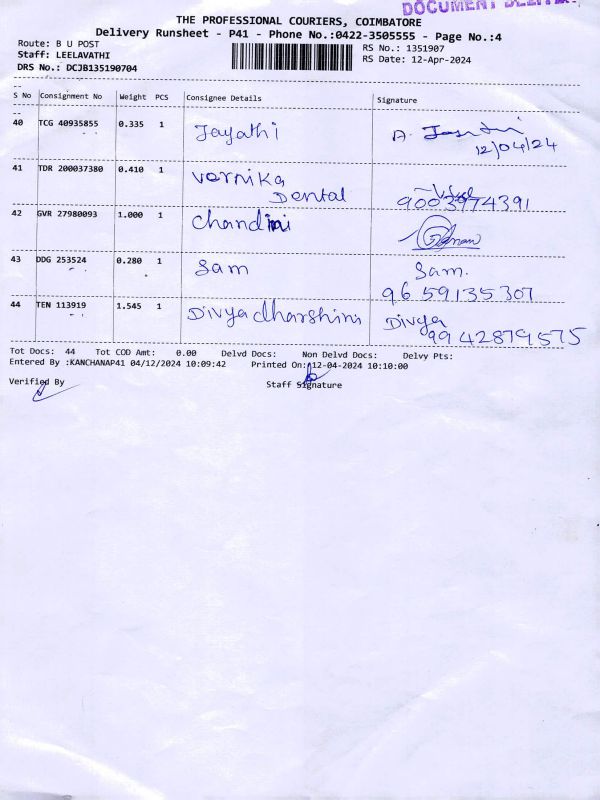 DOCUMENT
THE PROFESSIONAL COURIERS, COIMBATORE
Delivery Runsheet - P41 - Phone No.:0422-3505555 - Page No.:4
Route: B U POST
RS No.: 1351907
Staff: LEELAVATHI
RS Date: 12-Apr-2024
DRS No.: DCJB135190704
S No Consignment No Weight PCS Consignee Details Signature
40 TCG 40935855 0.335 1 Jayathi A.
12/04/24
41 TDR 200037380 0.410 1 vernika
Dental 9003974391
42 GVR 27980093 1.000 1 chandini
43 DDG 253524 0.280 1 Sam Sam.
9659135307
44 TEN 113919 1.545 1 Divyadharshini Divya
9942879575
Tot Docs: 44 Tot COD Amt: 0.00 Delvd Docs: Non Delvd Docs: Delvy Pts:
Entered By :KANCHANAP41 04/12/2024 10:09:42 Printed On: 12-04-2024 10:10:00
Verified By Staff Signature